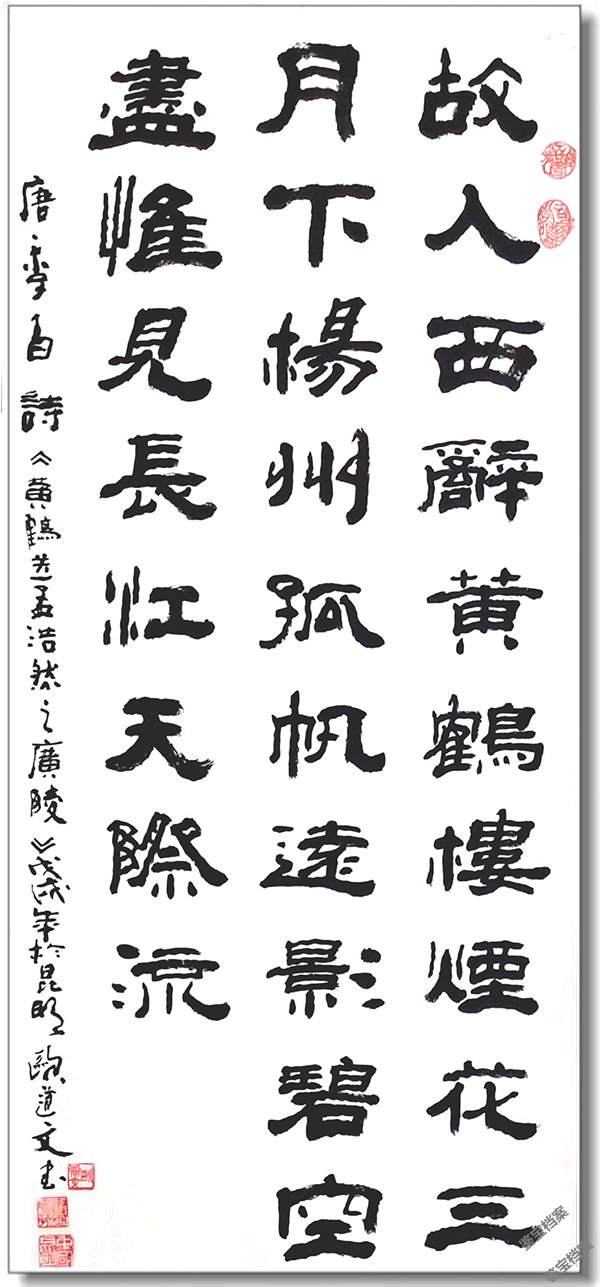 故人西辭黄鶴樓煙花三
月下楊州孤帆遠影碧空
盡惟見長江天際流
唐、李白詩《黄鶴送孟浩然之廣陵》戊戌年於昆明歐道文书
鉴宝档案
鉴宝档